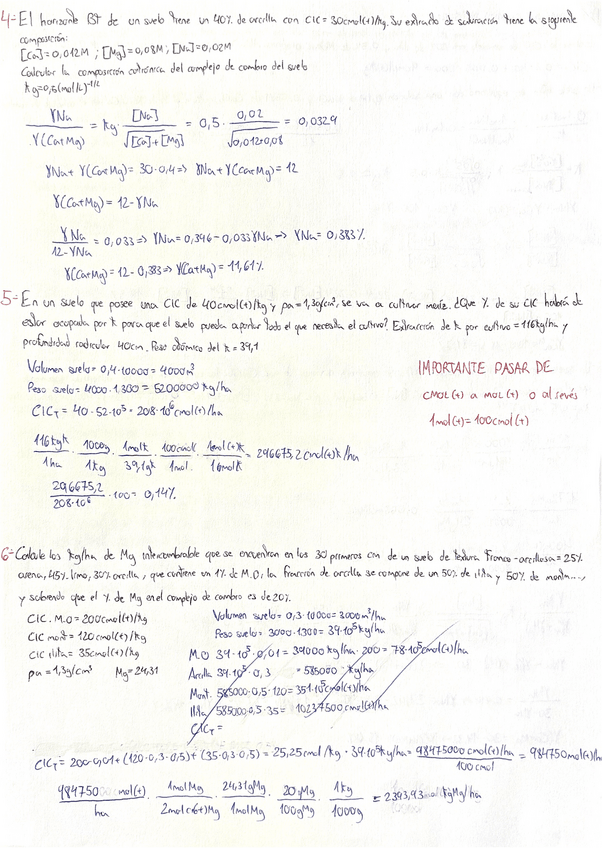 4- El horizonte Bt de un suelo tiene un 40% de arcilla con CIC = 30cmol(+)/kg. Su extracto de saturación tiene la siguiente
composición:
[Ca]=0,012M ; [Mg]=0,08M ; [Na]=0,02M
Calcular la composición catiónica del complejo de cambio del suelo
Kg=0,5(mol/L)^-1/2
γNa / γ(Ca+Mg) = Kg · [Na] / √[Ca]+[Mg] = 0,5 · 0,02 / √0,012+0,08 = 0,0329
γNa + γ(Ca+Mg) = 30·0,4 => γNa + γ(Ca+Mg) = 12
γ(Ca+Mg) = 12-γNa
γNa / 12-γNa = 0,033 => γNa = 0,396 - 0,033γNa -> γNa = 0,383%.
γ(Ca+Mg) = 12-0,383 => γ(Ca+Mg) = 11,61%.
5- En un suelo que posee una CIC de 40cmol(+)/kg y ρa = 1,3g/cm³, se va a cultivar maíz. ¿Que % de su CIC habrá de
estar ocupada por K para que el suelo pueda aportar todo el que necesita el cultivo? Extracción de K por cultivo = 116kg/ha y
profundidad radicular 40cm. Peso atómico del K = 39,1
Volumen suelo = 0,4·10000 = 4000m³
Peso suelo = 4000·1.300 = 5200000 kg/ha
CICT = 40·52·10⁵ = 208·10⁶ cmol(+)/ha
116kgK / 1ha · 1000g / 1kg · 1molK / 39,1gK · 100cmolK / 1mol · 1cmol(+)K / 1cmolK = 296675,2 cmol(+)K/ha
296675,2 / 208·10⁶ · 100 = 0,14%.
IMPORTANTE PASAR DE
cmol(+) a mol(+) o al revés
1mol(+)=100cmol(+)
6- Calcule los kg/ha de Mg intercambiable que se encuentran en los 30 primeros cm de un suelo de textura Franco-arcillosa = 25%
arena, 45% limo, 30% arcilla, que contiene un 1% de M.O; la fracción de arcilla se compone de un 50% de ilita y 50% de montm...,
y sabiendo que el % de Mg en el complejo de cambio es de 20%.
CIC M.O = 200cmol(+)/kg
CIC mont = 120cmol(+)/kg
CIC ilita = 35cmol(+)/kg
ρa = 1,3g/cm³ Mg=24,31
Volumen suelo = 0,3·10000 = 3000m³/ha
Peso suelo = 3000·1300 = 39·10⁵ kg/ha
M.O 39·10⁵·0,01 = 39000 kg/ha·200 = 78·10⁵ cmol(+)/ha
Arcilla 39·10⁵·0,3 = 585000 kg/ha
Mont. 585000·0,5·120 = 351·10⁵ cmol(+)/ha
Ilita 585000·0,5·35 = 10237500 cmol(+)/ha
CICT =
CICT = 200·0,01 + (120·0,3·0,5) + (35·0,3·0,5) = 25,25 cmol/kg · 39·10⁵ kg/ha = 98475000 cmol(+)/ha / 100 cmol = 984750 mol(+)/ha
984750 mol(+) / ha · 1molMg / 2mol(+)Mg · 24,31gMg / 1molMg · 20gMg / 100gMg · 1kg / 1000g = 2393,93 kgMg/ha